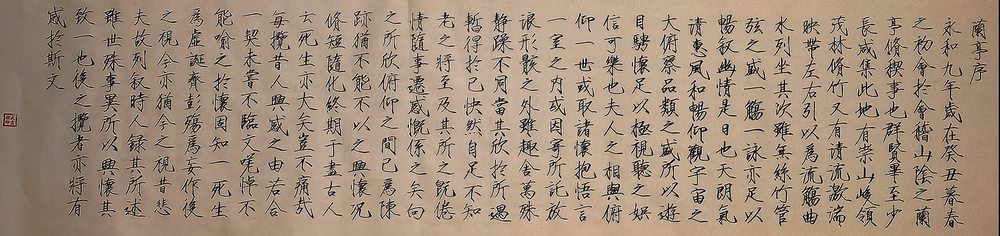 蘭亭序
永和九年歲在癸丑暮春
之初會於會稽山陰之蘭
亭脩稧事也群賢畢至少
長咸集此地有崇山峻領
茂林脩竹又有清流激湍
映帶左右引以為流觴曲
水列坐其次雖無絲竹管
弦之盛一觴一詠亦足以
暢敘幽情是日也天朗氣
清惠風和暢仰觀宇宙之
大俯察品類之盛所以遊
目騁懷足以極視聽之娛
信可樂也夫人之相與俯
仰一世或取諸懷抱悟言
一室之內或因寄所託放
浪形骸之外雖趣舍萬殊
静躁不同當其欣於所遇
暫得於己快然自足不知
老之將至及其所之既倦
情隨事遷感慨係之矣向
之所欣俯仰之間已為陳
跡猶不能不以之興懷況
脩短隨化終期于盡古人
云死生亦大矣豈不痛哉
每攬昔人興感之由若合
一契未嘗不臨文嗟悼不
能喻之於懷固知一死生
為虛誕齊彭殤為妄作後
之視今亦猶今之視昔悲
夫故列敘時人錄其所述
雖世殊事異所以興懷其
致一也後之攬者亦將有
感於斯文